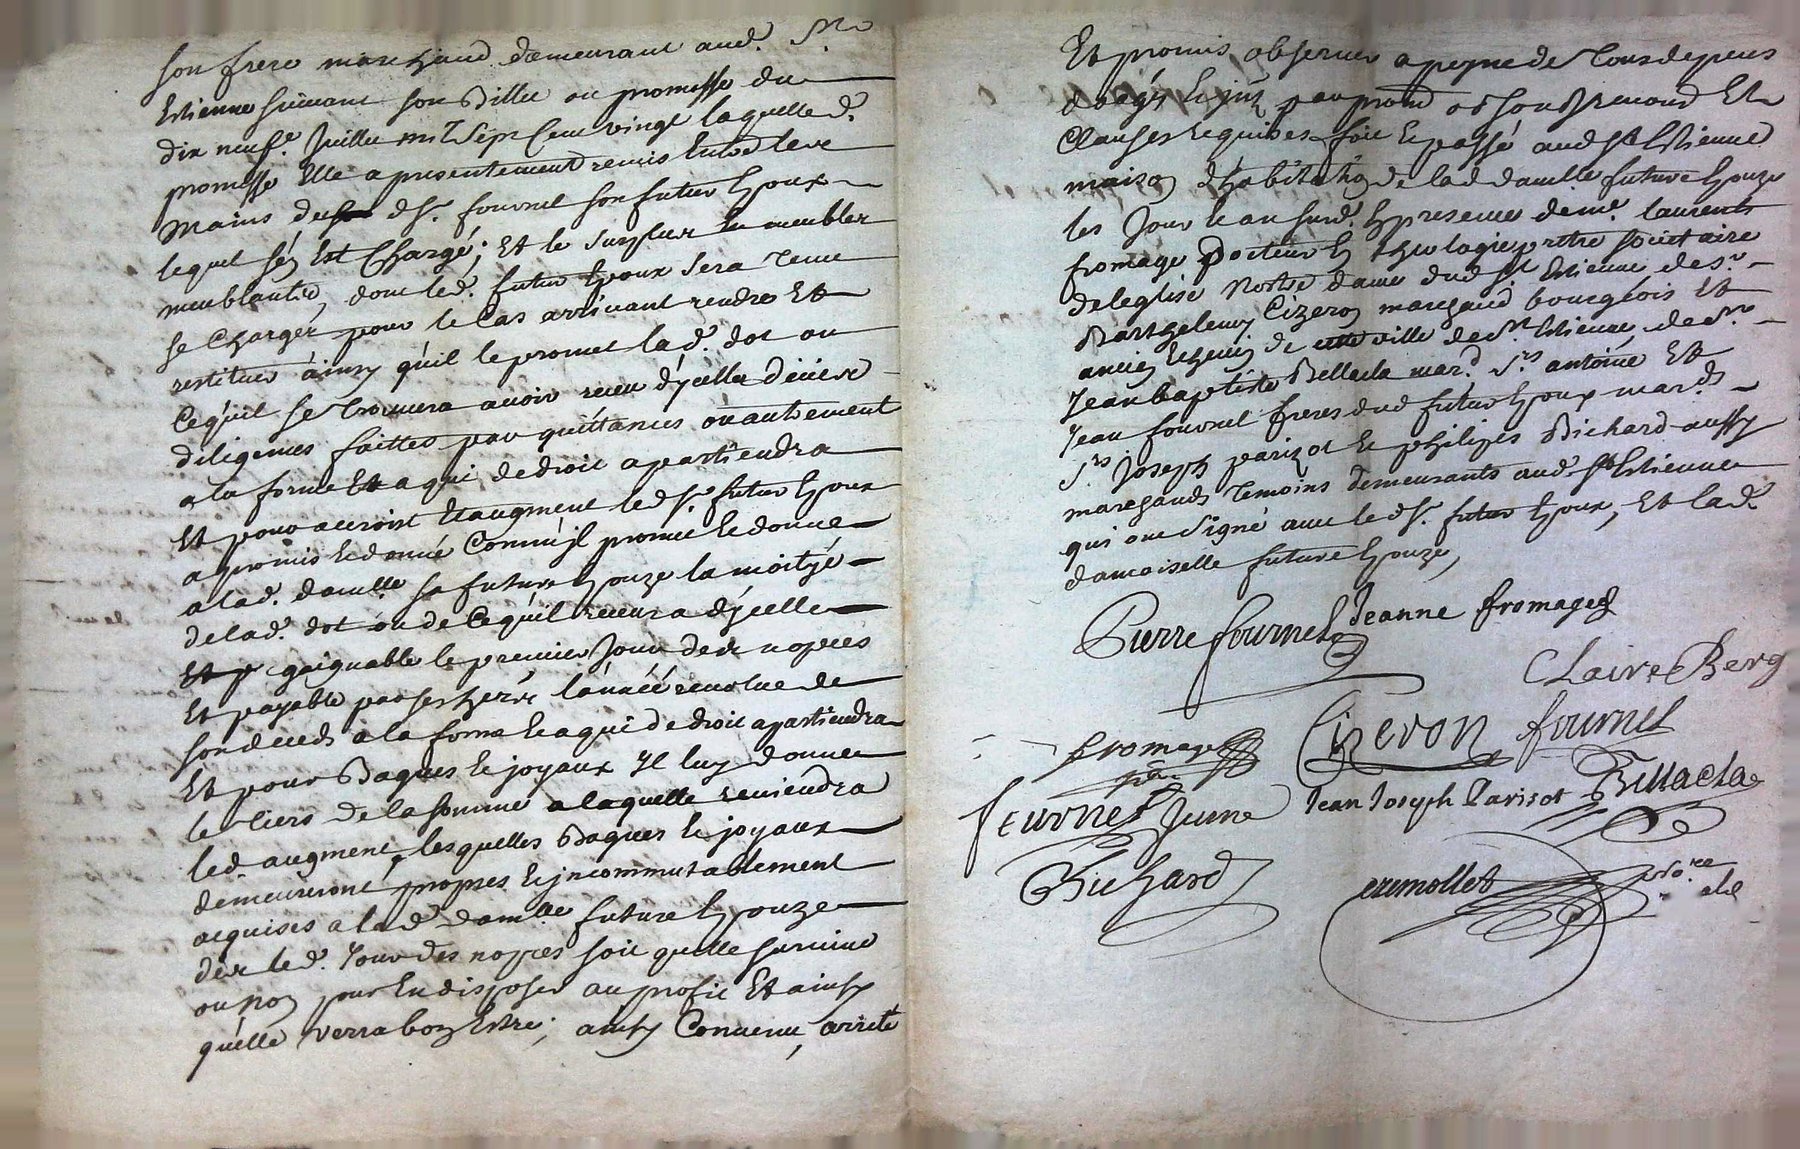 son frere marchand demeurant aud. St
Estienne suivant son Billet ou promesse du
dix neufe. Juillet mil Sept Cent vingt laquelle d.
promesse Elle a presentement remis Entre les
mains du d Sr. fournel son futur Epoux
lequel s'en Est Chargé; Et le surplus En meubles
meublants, dont led. futur Epoux sera Tenu
se Charger pour le Cas arrivant rendre Et
restituer ainsy qu'il le promet lad. dot ou
Cequil se trouvera avoir receu d'ycelle
diligences faittes par quittances ou autrement
a la forme Et a qui de droit apartiendra
Et pour accroist Et augment led Sr. futur Epoux
a promis Et donné Comm'jl promet Et donne
a lad. damlle sa future Epouze la moityé
de lad. dot ou de Cequil recevra d'ycelle
gaignable le premier Jour des nopces
Et payable par ses hers. l'année revolue de
son deceds a la forme Et a qui de droit apartiendra
Et pour Bagues Et joyaux Il luy donne
le tiers de la somme a laquelle reviendra
led. augment, lesquelles Bagues Et joyaux
demeureront propres Et jncommutablement
acquises a lad. damlle future Epouze
des led. Jour des nopces soit quelle survive
ou non pour En disposer au profit Et ainsy
qu'elle verra bon Estre; ainsy Convenu, arreté
Et promis observer a peyne de Tous depens
Clauses requises fait Et passé aud St Estienne
maison d'habitation de lad damlle future Epouze
les Jour Et an susd. En presence de me. laurents
fromage Docteur En Theologie prttre societaire
de leglise Nostre dame dud St. Estienne de sr.
Barthelemy Cizeron marchand bourgeois Et
ancien Echevin de cette ville de St Estienne, de Sr
Jean baptiste Bellacla mard. Srs antoine Et
Jean fournel freres dud futur Epoux mards
Srs Joseph parizot Et philipes Bichard aussy
marchands Temoins demeurants aud. St Estienne
qui ont signé avec led Sr. futur Epoux, Et lad.
damoiselle future Epouze,
Pierre fournel Jeanne fromage
Claire Berg
fromage Cizeron fournel
ptre
fournel Jeune Jean Joseph Parizot Bellacla
Bichard